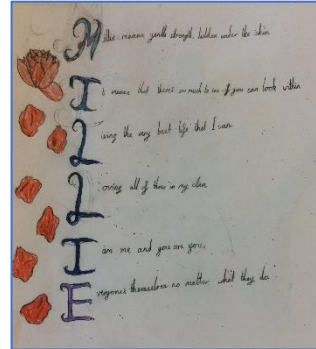 Millie means gentle strength, hidden under the skin
It means that there's so much to me if you can look within
Living the very best life that I can
Loving all of those in my clan
I am me and you are you,
Everyone's themselves no matter what they do